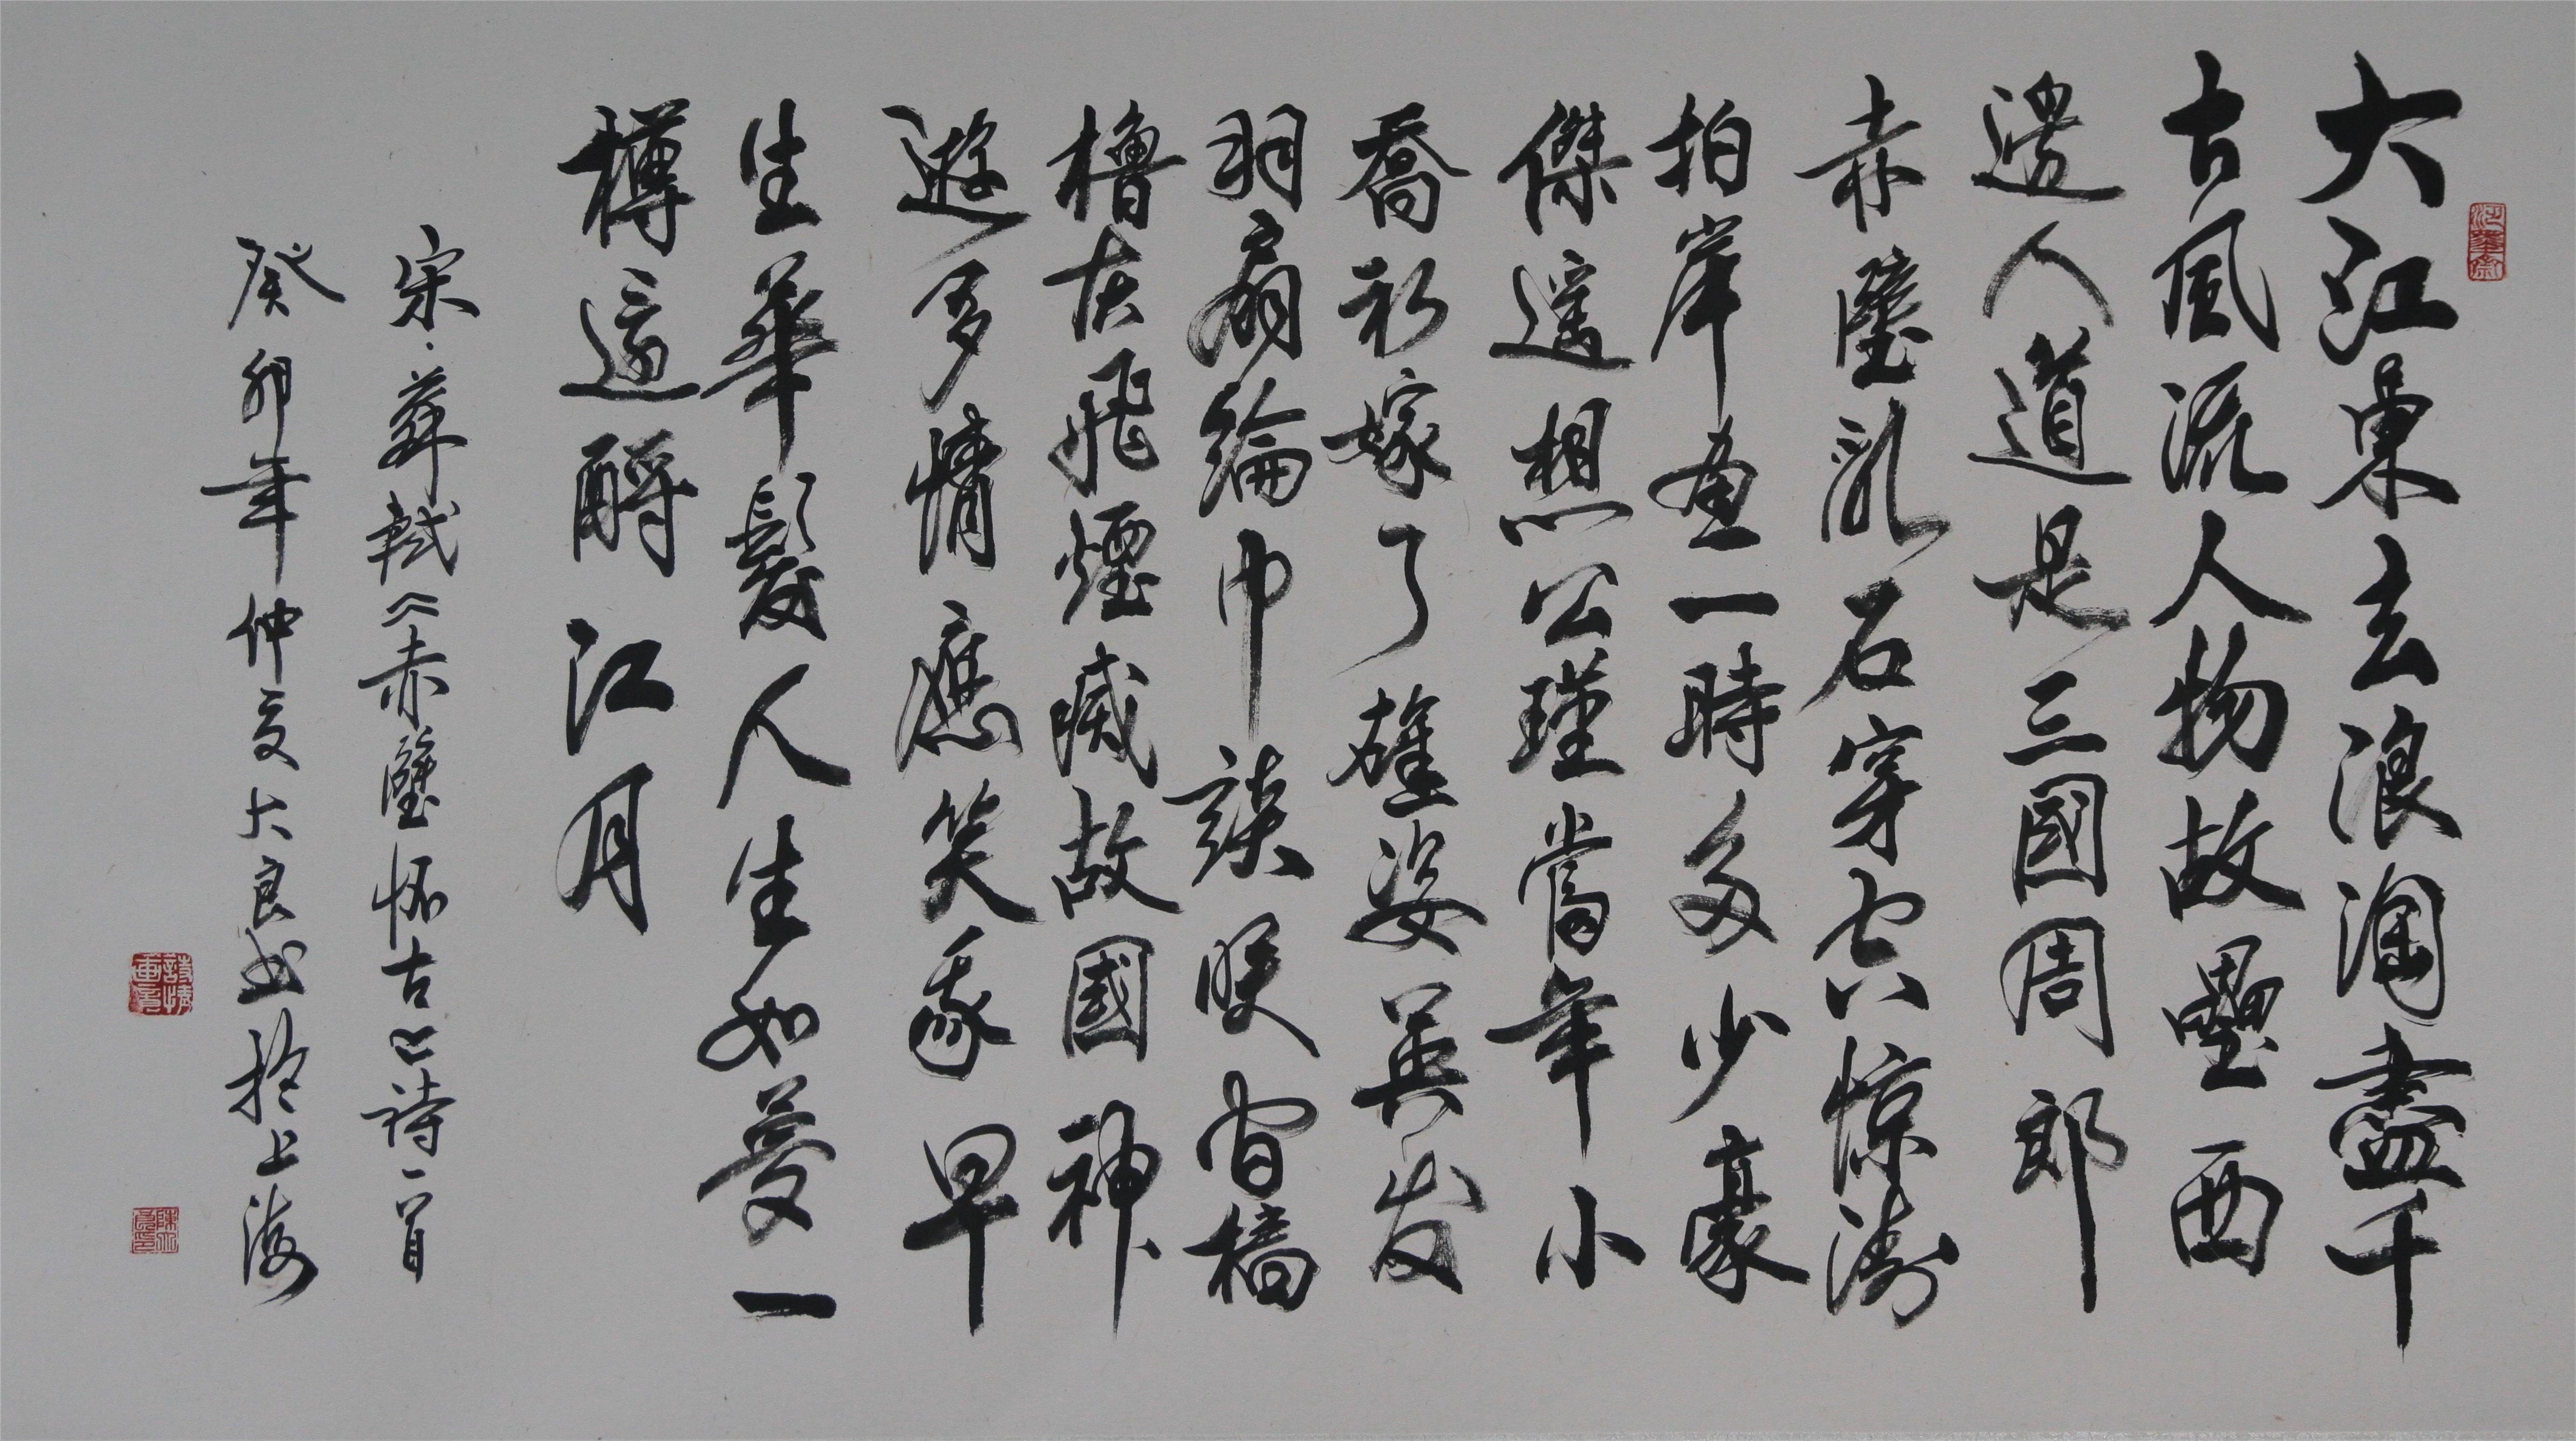 大江東去浪淘盡千
古風流人物故壘西
邊人道是三國周郎
赤壁乱石穿空惊濤
拍岸画一時多少豪
傑遥想公瑾當年小
喬初嫁了雄姿英发
羽扇綸巾談咲间檣
櫓灰飛煙滅故國神
遊多情應笑我早
生華髮人生如夢一
樽還酹江月
宋·蘇軾《赤壁怀古》詩一首
癸卯年仲夏大良书於上海
詩情畫意
陳大良印